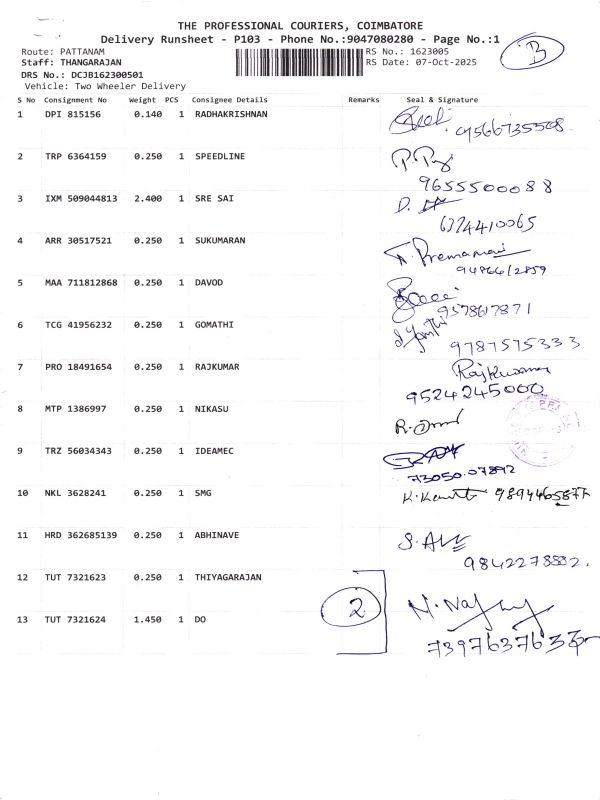 THE PROFESSIONAL COURIERS, COIMBATORE
Delivery Runsheet - P103 - Phone No.:9047080280 - Page No.:1
B
Route: PATTANAM RS No.: 1623005
Staff: THANGARAJAN RS Date: 07-Oct-2025
DRS No.: DCJB162300501
Vehicle: Two Wheeler Delivery
S No Consignment No Weight PCS Consignee Details Remarks Seal & Signature
1 DPI 815156 0.140 1 RADHAKRISHNAN
2 TRP 6364159 0.250 1 SPEEDLINE
9655500088
3 IXM 509044813 2.400 1 SRE SAI D.
6374410065
4 ARR 30517521 0.250 1 SUKUMARAN
5 MAA 711812868 0.250 1 DAVOD
9578617871
6 TCG 41956232 0.250 1 GOMATHI
9787575333
7 PRO 18491654 0.250 1 RAJKUMAR Rajkumar
9524245000
8 MTP 1386997 0.250 1 NIKASU
9 TRZ 56034343 0.250 1 IDEAMEC
73050.07892
10 NKL 3628241 0.250 1 SMG 9894465877
11 HRD 362685139 0.250 1 ABHINAVE
9842278832.
12 TUT 7321623 0.250 1 THIYAGARAJAN
2
13 TUT 7321624 1.450 1 DO